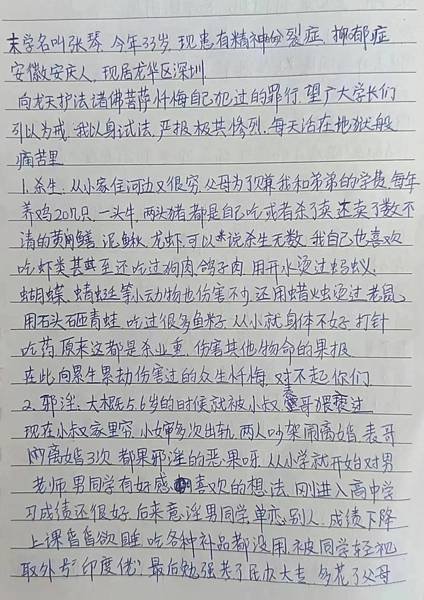 末学名叫张琴,今年33岁,现患有精神分裂症,抑郁症
安徽安庆人,现居龙华区深圳
向龙天护法诸佛菩萨忏悔自己犯过的罪行,望广大学长们
可以为戒,我以身试法,严报极其惨烈,每天活在地狱般
痛苦里
1.杀生,从小家住河边又很穷,父母为了预算我和弟弟的学费,每年
养鸡20几只,一头牛,两头猪都是自己吃或者杀了卖,还卖了数不
清的黄鳝,泥鳅,龙虾,可以说杀生无数,我自己也喜欢
吃虾类甚至还吃过狗肉,鸽子肉,用开水烫过蚂蚁,
蝴蝶,蜻蜓等小动物也伤害不少,还用蜡火烫过老鼠,
用石头砸青蛙,吃过很多鱼籽,从小就身体不好,打针
吃药,原来这都是杀业重,伤害其他物命的果报
在此向累生累劫伤害过的众生忏悔,对不起你们
2.邪淫:大概5.6岁的时候就被小叔表哥猥亵过
现在小叔家里穷,小婶多次出轨,两人吵架闹离婚,表哥
离婚3次,都是邪淫的恶果呀,从小学就开始对男
老师男同学有好感喜欢的想法,刚进入高中学
习成绩还很好,后来意淫男同学,单恋别人,成绩下降
上课昏昏欲睡,吃各种补品都没用,被同学轻视
取外号"印度佬"最后勉强去了民办大专,多花了父母